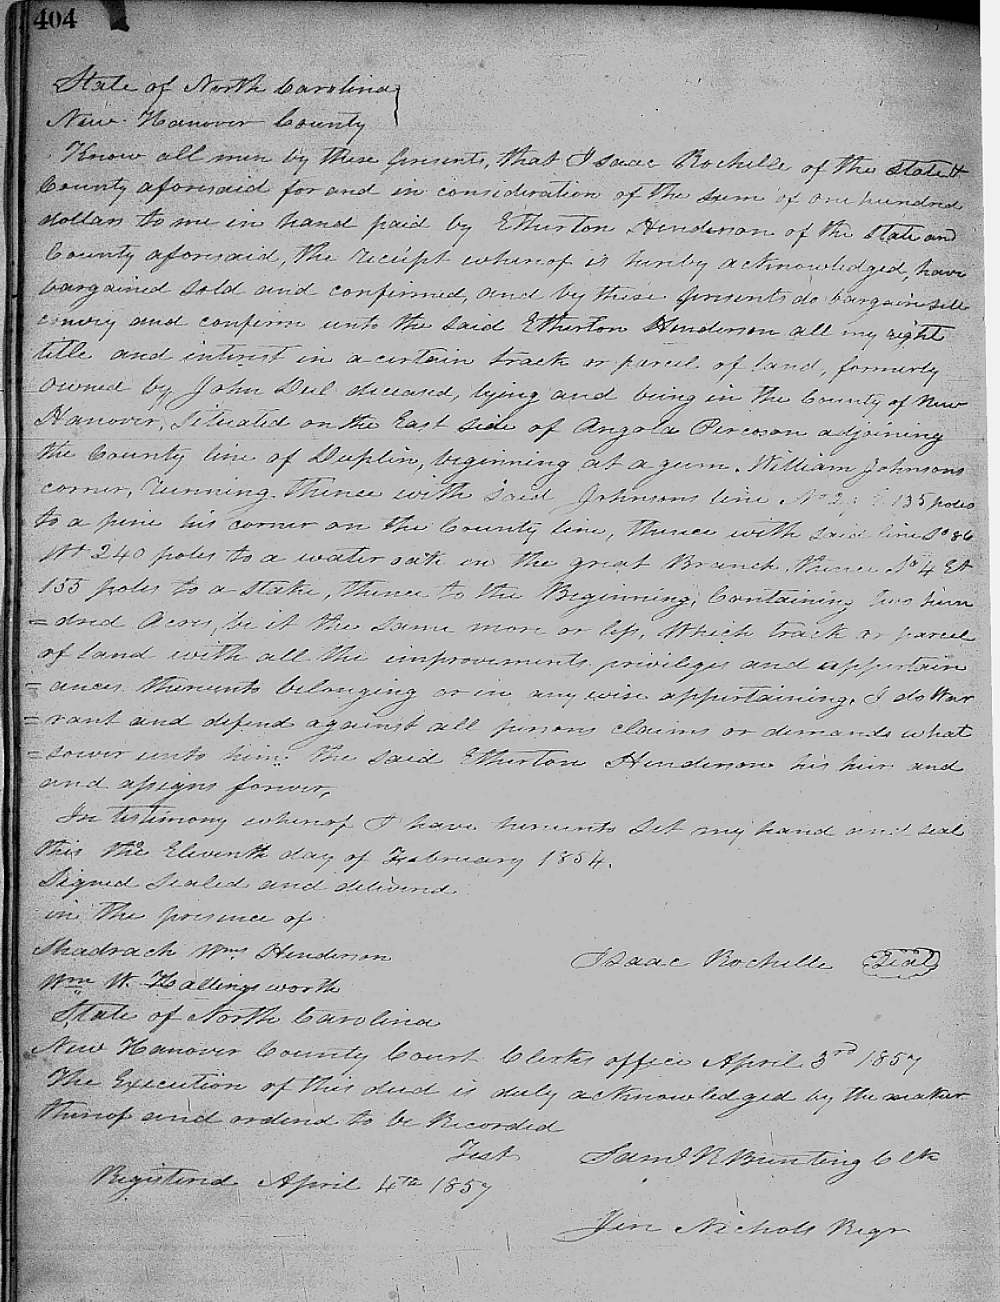 404
State of North Carolina
New Hanover County
Know all men by these presents, that Isaac Rochelle of the State &
County aforesaid for and in consideration of the sum of one hundred
dollars to me in hand paid by Etherton Henderson of the State and
County aforesaid, the receipt whereof is hereby acknowledged, have
bargained sold and confirmed, and by these presents do bargain sell
convey and confirm unto the said Etherton Henderson all my right
title and interest in a certain track or parcel of land, formerly
owned by John Deel deceased, lying and being in the County of New
Hanover, Situated on the East side of Angola Percoson adjoining
the County line of Duplin, beginning at a gum, William Johnsons
corner, running thence with said Johnsons line No 135 poles
to a pine his corner on the County line, thence with said line So 86
Wt 240 poles to a water oak in the great Branch, thence So 4 Et
155 poles to a stake, thence to the Beginning, Containing two hun
=dred Acres, be it the same more or less, Which track or parcel
of land with all the improvements privileges and appertain
=ances thereunto belonging or in any wise appertaining, I do War
=rant and defend against all persons claims or demands what
=soever unto him. The said Etherton Henderson his heir and
and assigns forever,
In testimony whereof I have hereunto set my hand and seal
this the Eleventh day of February 1854.
Signed Sealed and delivered
in the presence of
Shadrach Wms Henderson
Isaac Rochelle Seal
Wm W. Hallingsworth
State of North Carolina
New Hanover County Court Clerks office April 3rd 1857
The Execution of this deed is duly acknowledged by the maker
thereof and ordered to be Recorded
Test Saml R Bunting Clk
Registered April 4th 1857
Jim Nichols Regr